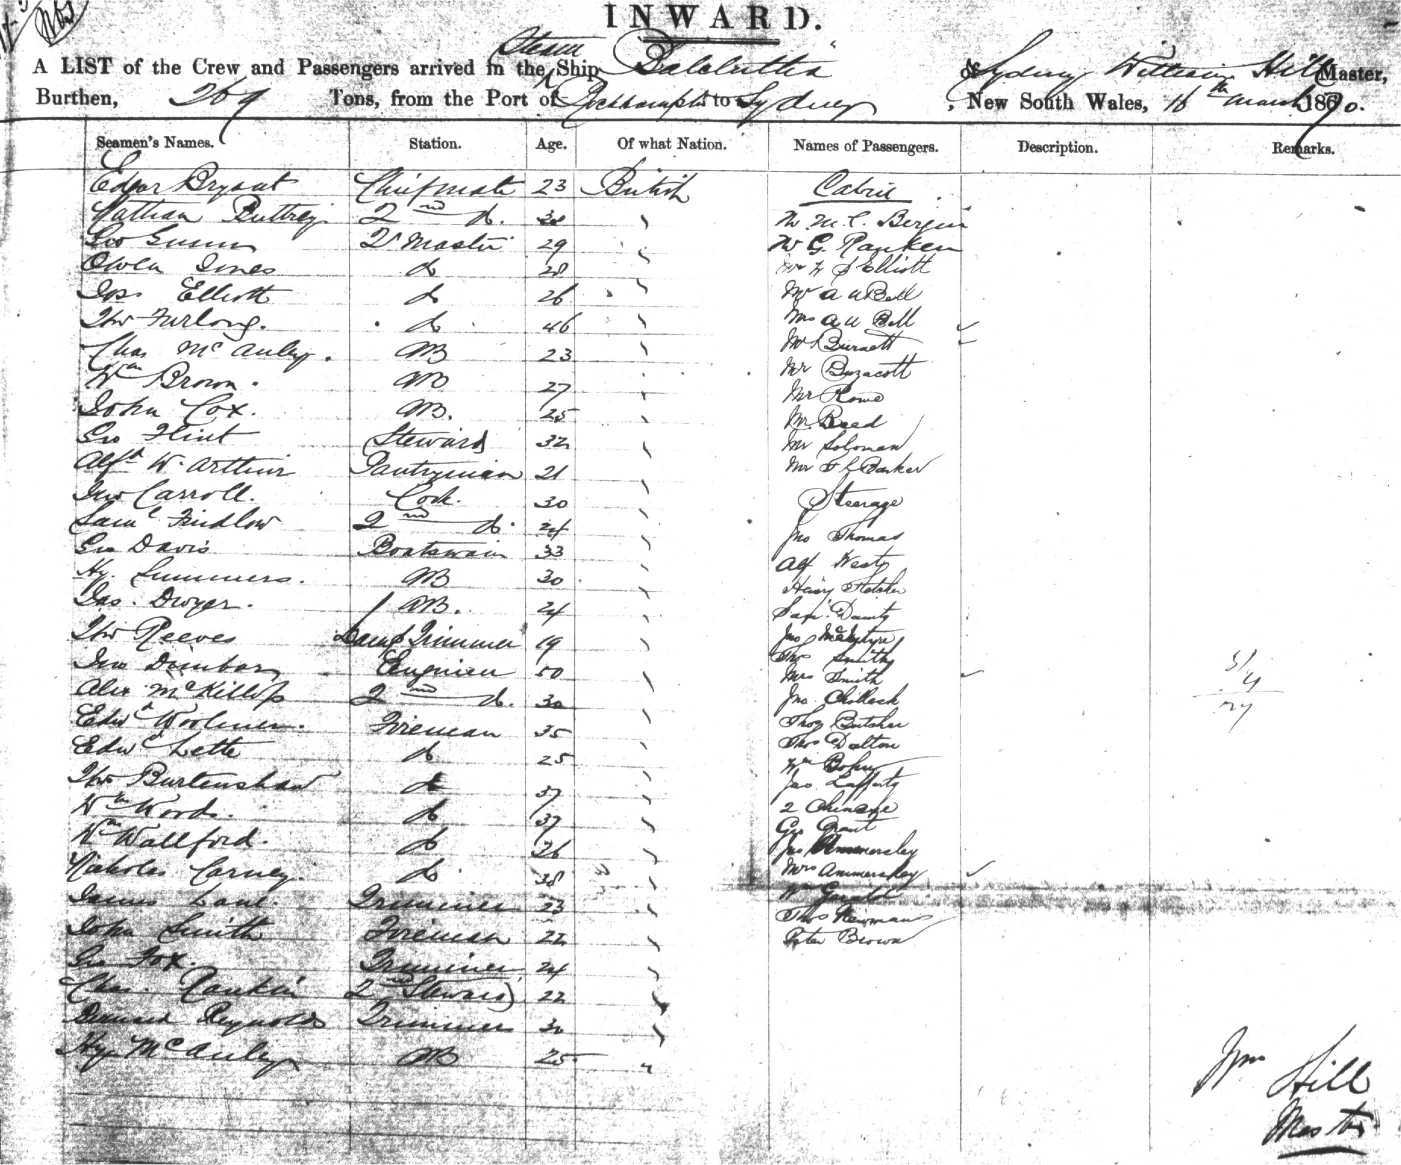 INWARD.
Steam
A LIST of the Crew and Passengers arrived in the Ship Balclutha of Sydney William Hill Master,
Burthen, 269 Tons, from the Port of Rockhampton to Sydney, New South Wales, 16th March 1870.
Seamen's Names. Station. Age. Of what Nation. Names of Passengers. Description. Remarks.
Edgar Bryant Chief mate 23 British Cabin
Nathan Buttrey 2nd d. 30
Geo Gunn Qr Master 29 Mr G Ranken
Owen Jones d 28 Elliott
Jos Elliott d 26 Mr A W Bell
Thos Furlong. d 46 Mrs A W Bell
Chas McAuley. AB 23 Burnett
Wm Brown. AB 27 Mr Buzacott
John Cox. AB. 25 Mr Rowe
Geo Flint Steward 32 Mr Reed
Alfd W. Arthur Pantryman 21 Mr Soloman
Jno Carroll. Cook. 30 Mr Barker
Saml Findlow 2nd d. 24 Steerage
Geo Davis Boatswain 33 Jno Thomas
Hy. Summers. AB 30 Alf West
Jas. Dwyer. AB. 24 Henry Fletcher
Thos Reeves Lamp Trimmer 19 Saml Daunty
Jno Dunbar Engineer 50 Jno McIntyre
Alex McKillop 2nd d. 30 Thos Smith
Edwd Woolmer. Fireman 35 Mrs Smith
Edwd Lette d 25 Jno.
Thos Burtenshaw d 37 Thos Butcher
Wm Woods. d 37 Thos Dalton
Wm Wallford. d 26 Wm
Nicholas Carney. d 38 Jas Lafferty
James Lane. Trimmer 23 2 Chinese
John Smith Fireman 22 Geo Grant
Geo Fox. Trimmer 24 Jas Ammersley
Chas. Rankin 2nd Steward 22 Mrs Ammersley
Bernard Reynolds Trimmer 30 Thos Newman
Hy McAuley AB 25 Peter Brown
Wm Hill
Master